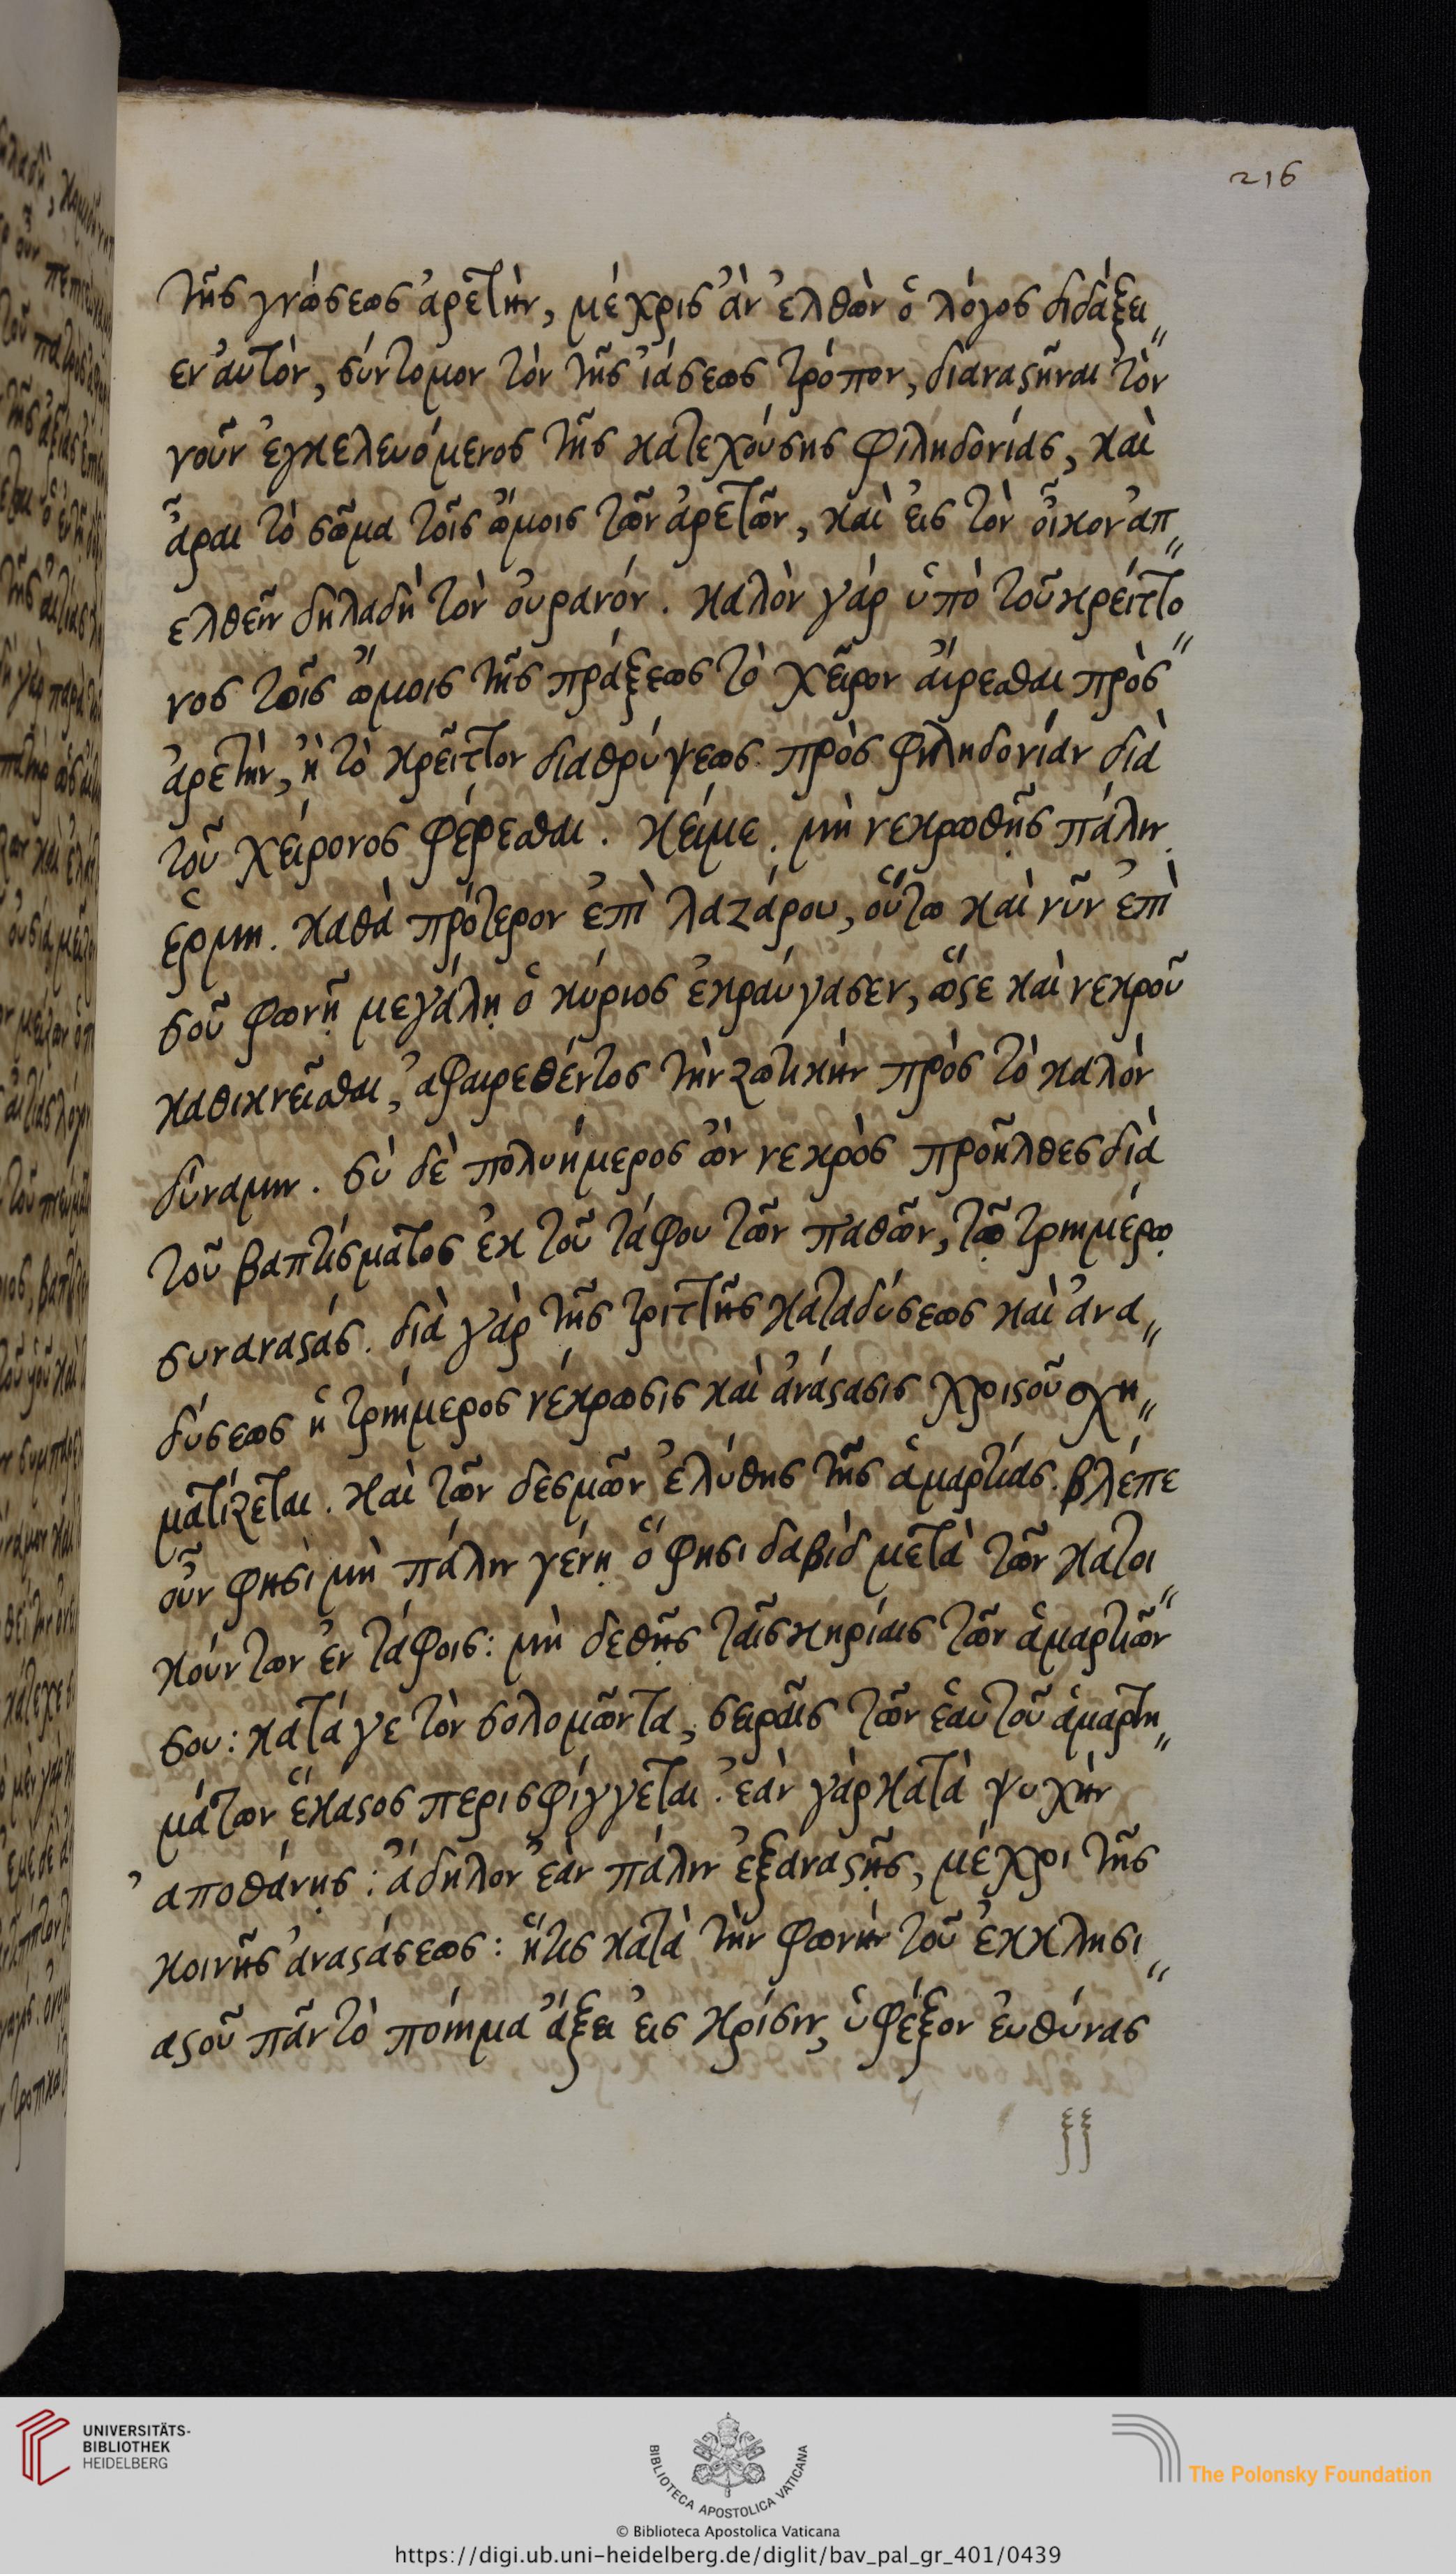 216
τῆς γνώσεως ἀρετὴν, μέχρις ἂν ἐλθὼν ὁ λόγος διδάξει
εν αὐτὸν, σύντομον τὸν τῆς ἰάσεως τρόπον, διαναστῆναι τὸν
νοῦν ἐγκελευόμενος τῆς κατεχούσης φιληδονίας, καὶ
ἆραι τὸ σῶμα τοῖς ὤμοις τῶν ἀρετῶν, καὶ εἰς τὸν οἶκον ἀπ
ελθεῖν δηλαδὴ τὸν οὐρανόν. καλὸν γάρ ὑπὸ τοῦ κρείττο
νος τοῖς ὤμοις τῆς πράξεως τὸ χεῖρον αἴρεσθαι πρὸς
ἀρετὴν, ἢ τὸ κρεῖττον διαθρύψεως πρὸς φιληδονίαν διὰ
τοῦ χείρονος φέρεσθαι. κείμε. μὴ νεκρωθῇς πάλιν.
ἑρμη. καθὰ πρότερον ἐπὶ λαζάρου, οὕτω καὶ νῦν ἐπὶ
σοῦ φωνῇ μεγάλῃ ὁ κύριος ἐκραύγασεν, ὥστε καὶ νεκροῦ
καθικνεῖσθαι, ἀφαιρεθέντος τὴν ζωτικὴν πρὸς τὸ καλὸν
δύναμιν. σὺ δὲ πολυήμερος ὢν νεκρὸς προῆλθες διὰ
τοῦ βαπτίσματος ἐκ τοῦ τάφου τῶν παθῶν, τῷ τριημέρῳ
συναναστάς. διὰ γὰρ τῆς τριττῆς καταδύσεως καὶ ἀνα
δύσεως ἡ τριήμερος νέκρωσις καὶ ἀνάστασις χριστοῦ σχη
ματίζεται. καὶ τῶν δεσμῶν ἐλύθης τῆς ἁμαρτίας. βλέπε
οὖν φησὶ μὴ πάλιν γένῃ ὅ φησι δαβὶδ μετὰ τῶν κατοι
κούντων ἐν τάφοις: μὴ δεθῇς ταῖς κηρίαις τῶν ἁμαρτιῶν
σου: κατά γε τὸν σολομῶντα, σειραῖς τῶν ἑαυτοῦ ἁμαρτη
μάτων ἕκαστος περισφίγγεται. ἐὰν γὰρ κατὰ ψυχὴν
ἀποθάνῃς: ἄδηλον ἐὰν πάλιν ἐξαναστῇς, μέχρι τῆς
κοινῆς ἀναστάσεως: ἥτις κατὰ τὴν φωνὴν τοῦ ἐκκλησι
αστοῦ πᾶν τὸ ποίημα ἄξει εἰς κρίσιν, ὑφέξον εὐθύνας
ξξ
UNIVERSITÄTS-
BIBLIOTHEK
HEIDELBERG
BIBLIOTECA APOSTOLICA VATICANA
The Polonsky Foundation
© Biblioteca Apostolica Vaticana
https://digi.ub.uni-heidelberg.de/diglit/bav_pal_gr_401/0439